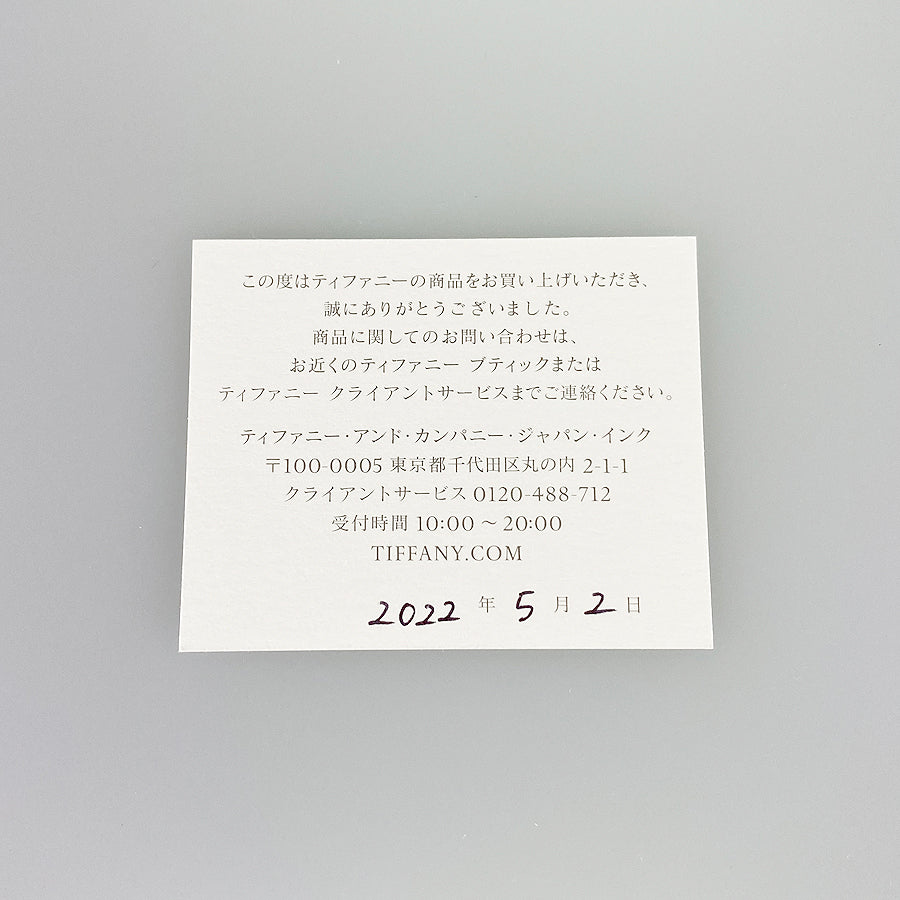 この度はティファニーの商品をお買い上げいただき、
誠にありがとうございました。
商品に関してのお問い合わせは、
お近くのティファニー ブティックまたは
ティファニー クライアントサービスまでご連絡ください。
ティファニー・アンド・カンパニー・ジャパン・インク
〒100-0005 東京都千代田区丸の内 2-1-1
クライアントサービス 0120-488-712
受付時間 10:00 ～ 20:00
TIFFANY.COM
2022 年 5 月 2 日